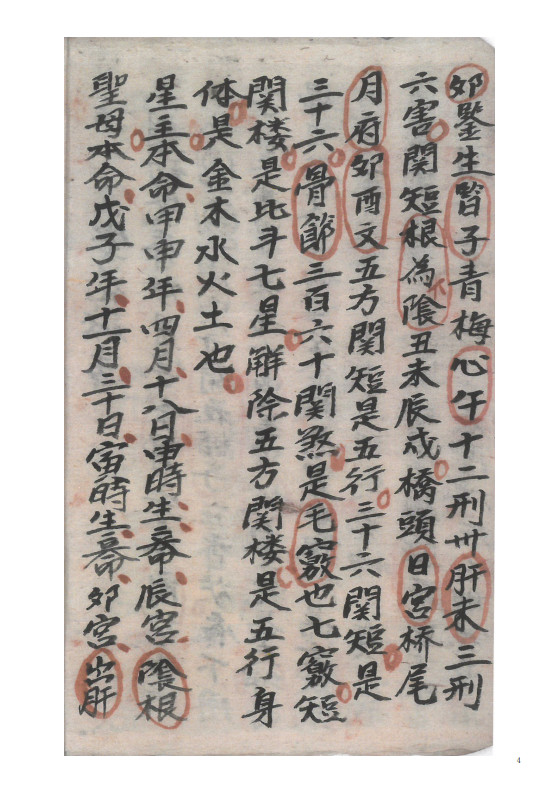 郊鑒生皆子青梅心午十二刑卅肝未三刑
六害関短根為陰丑未辰戍橋頭日宮桥尾
月府郊酉文五方関短是五行三十六関短是
三十六骨節三百六十関煞是毛竅也七竅短
関楼是比斗七星解除五方関楼是五行身
体是金木水火土也
星主本命甲申年四月十八日申時生命辰宮陰根
聖母本命戊子年十一月三十日寅時生命郊宮出肝
4